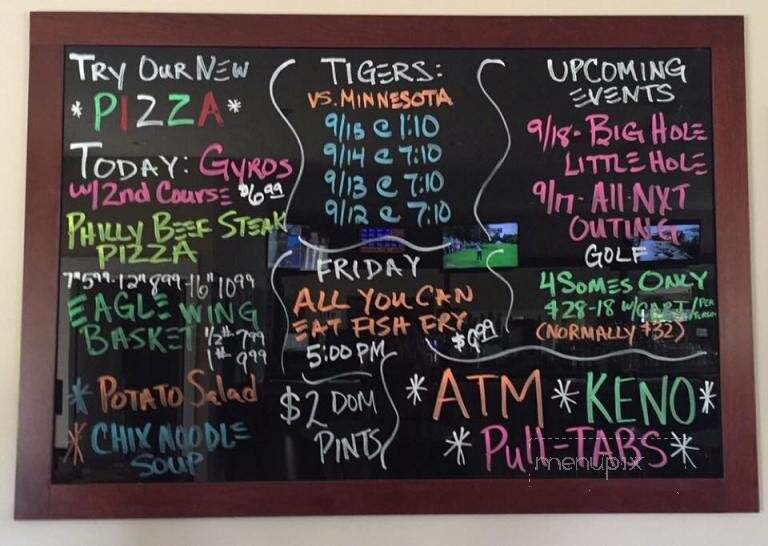 TRY OUR NEW
* PIZZA *
TODAY: GYROS
w/2nd COURSE $6.99
PHILLY BEEF STEAK
PIZZA
7" 5.99 - 12" 8.99 - 16" 10.99
EAGLE WING
BASKET 1/2# 7.99
1# 9.99
* POTATO Salad
* CHIX NOODLE
SOUP
TIGERS:
VS. MINNESOTA
9/15 @ 1:10
9/14 @ 7:10
9/13 @ 7:10
9/12 @ 7:10
FRIDAY
ALL YOU CAN
EAT FISH FRY
5:00 PM $9.99
$2 DOM
PINTS
UPCOMING
EVENTS
9/18 - BIG HOLE
LITTLE HOLE
9/17 - All-NXT
OUTING
GOLF
4SOMES ONLY
$28-18 W/CART/PER PERSON
(NORMALLY $32)
* ATM * KENO *
* Pull-TABS *
menupix